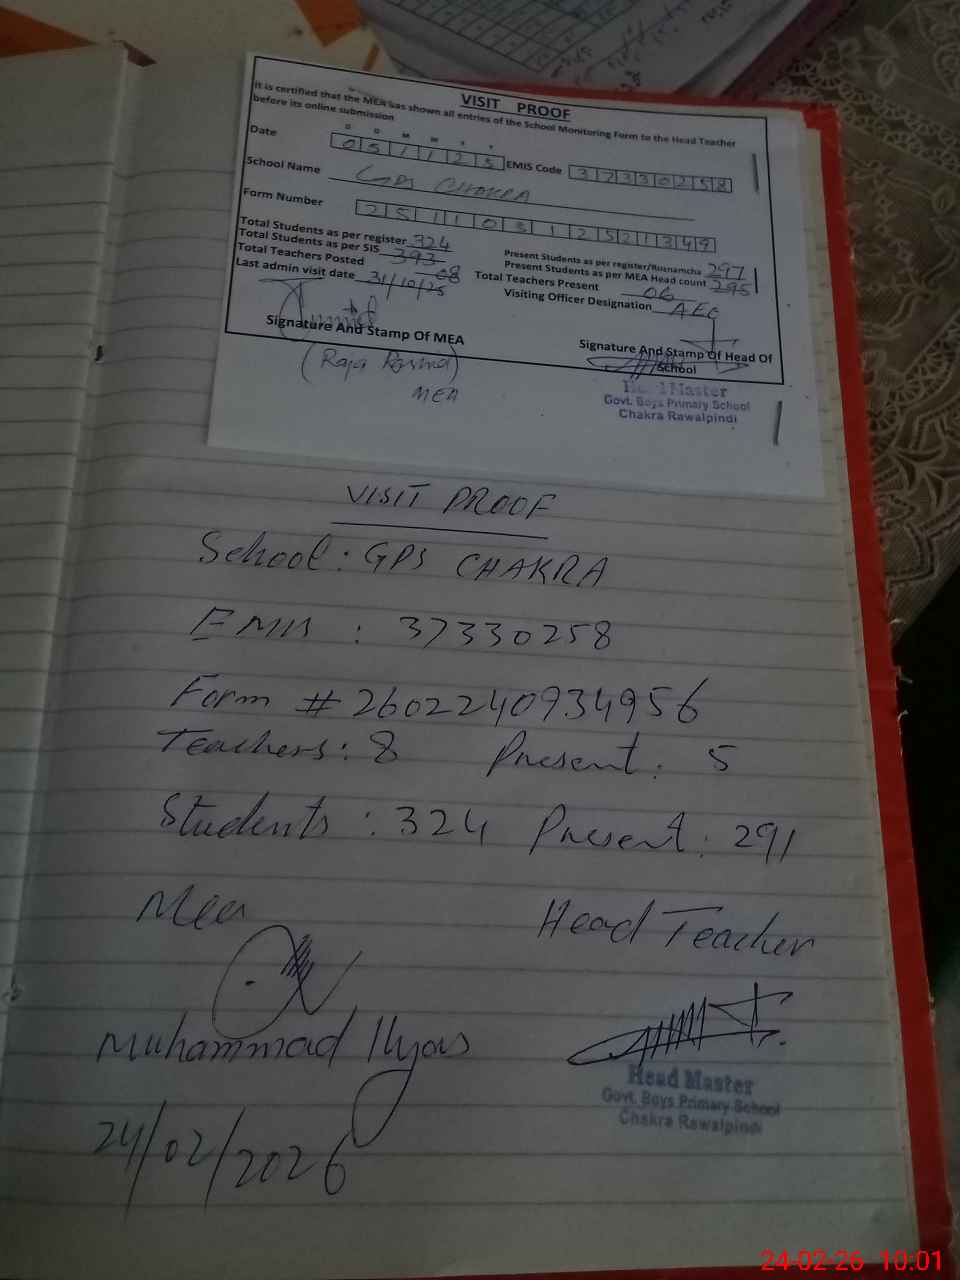 VISIT PROOF
It is certified that the MEA has shown all entries of the School Monitoring Form to the Head Teacher
before its online submission
D D M M Y Y
Date 051125 EMIS Code 37330258
School Name GPS CHAKRA
Form Number 25110312521349
Total Students as per register 324 Present Students as per register/Roznamcha 297
Total Students as per SIS 393 Present Students as per MEA Head count 295
Total Teachers Posted 08 Total Teachers Present 06
Last admin visit date 31/10/25 Visiting Officer Designation AEO
Signature And Stamp Of MEA Signature And Stamp Of Head Of
School
(Raja
MEA
Head Master
Govt. Boys Primary School
Chakra Rawalpindi
VISIT PROOF
School: GPS CHAKRA
EMIS : 37330258
Form # 2602240934956
Teachers: 8 Present: 5
Students: 324 Present: 291
Mea Head Teacher
Muhammad Ilyas
Head Master
Govt. Boys Primary School
Chakra Rawalpindi
24/02/2026
24-02-26 10:01